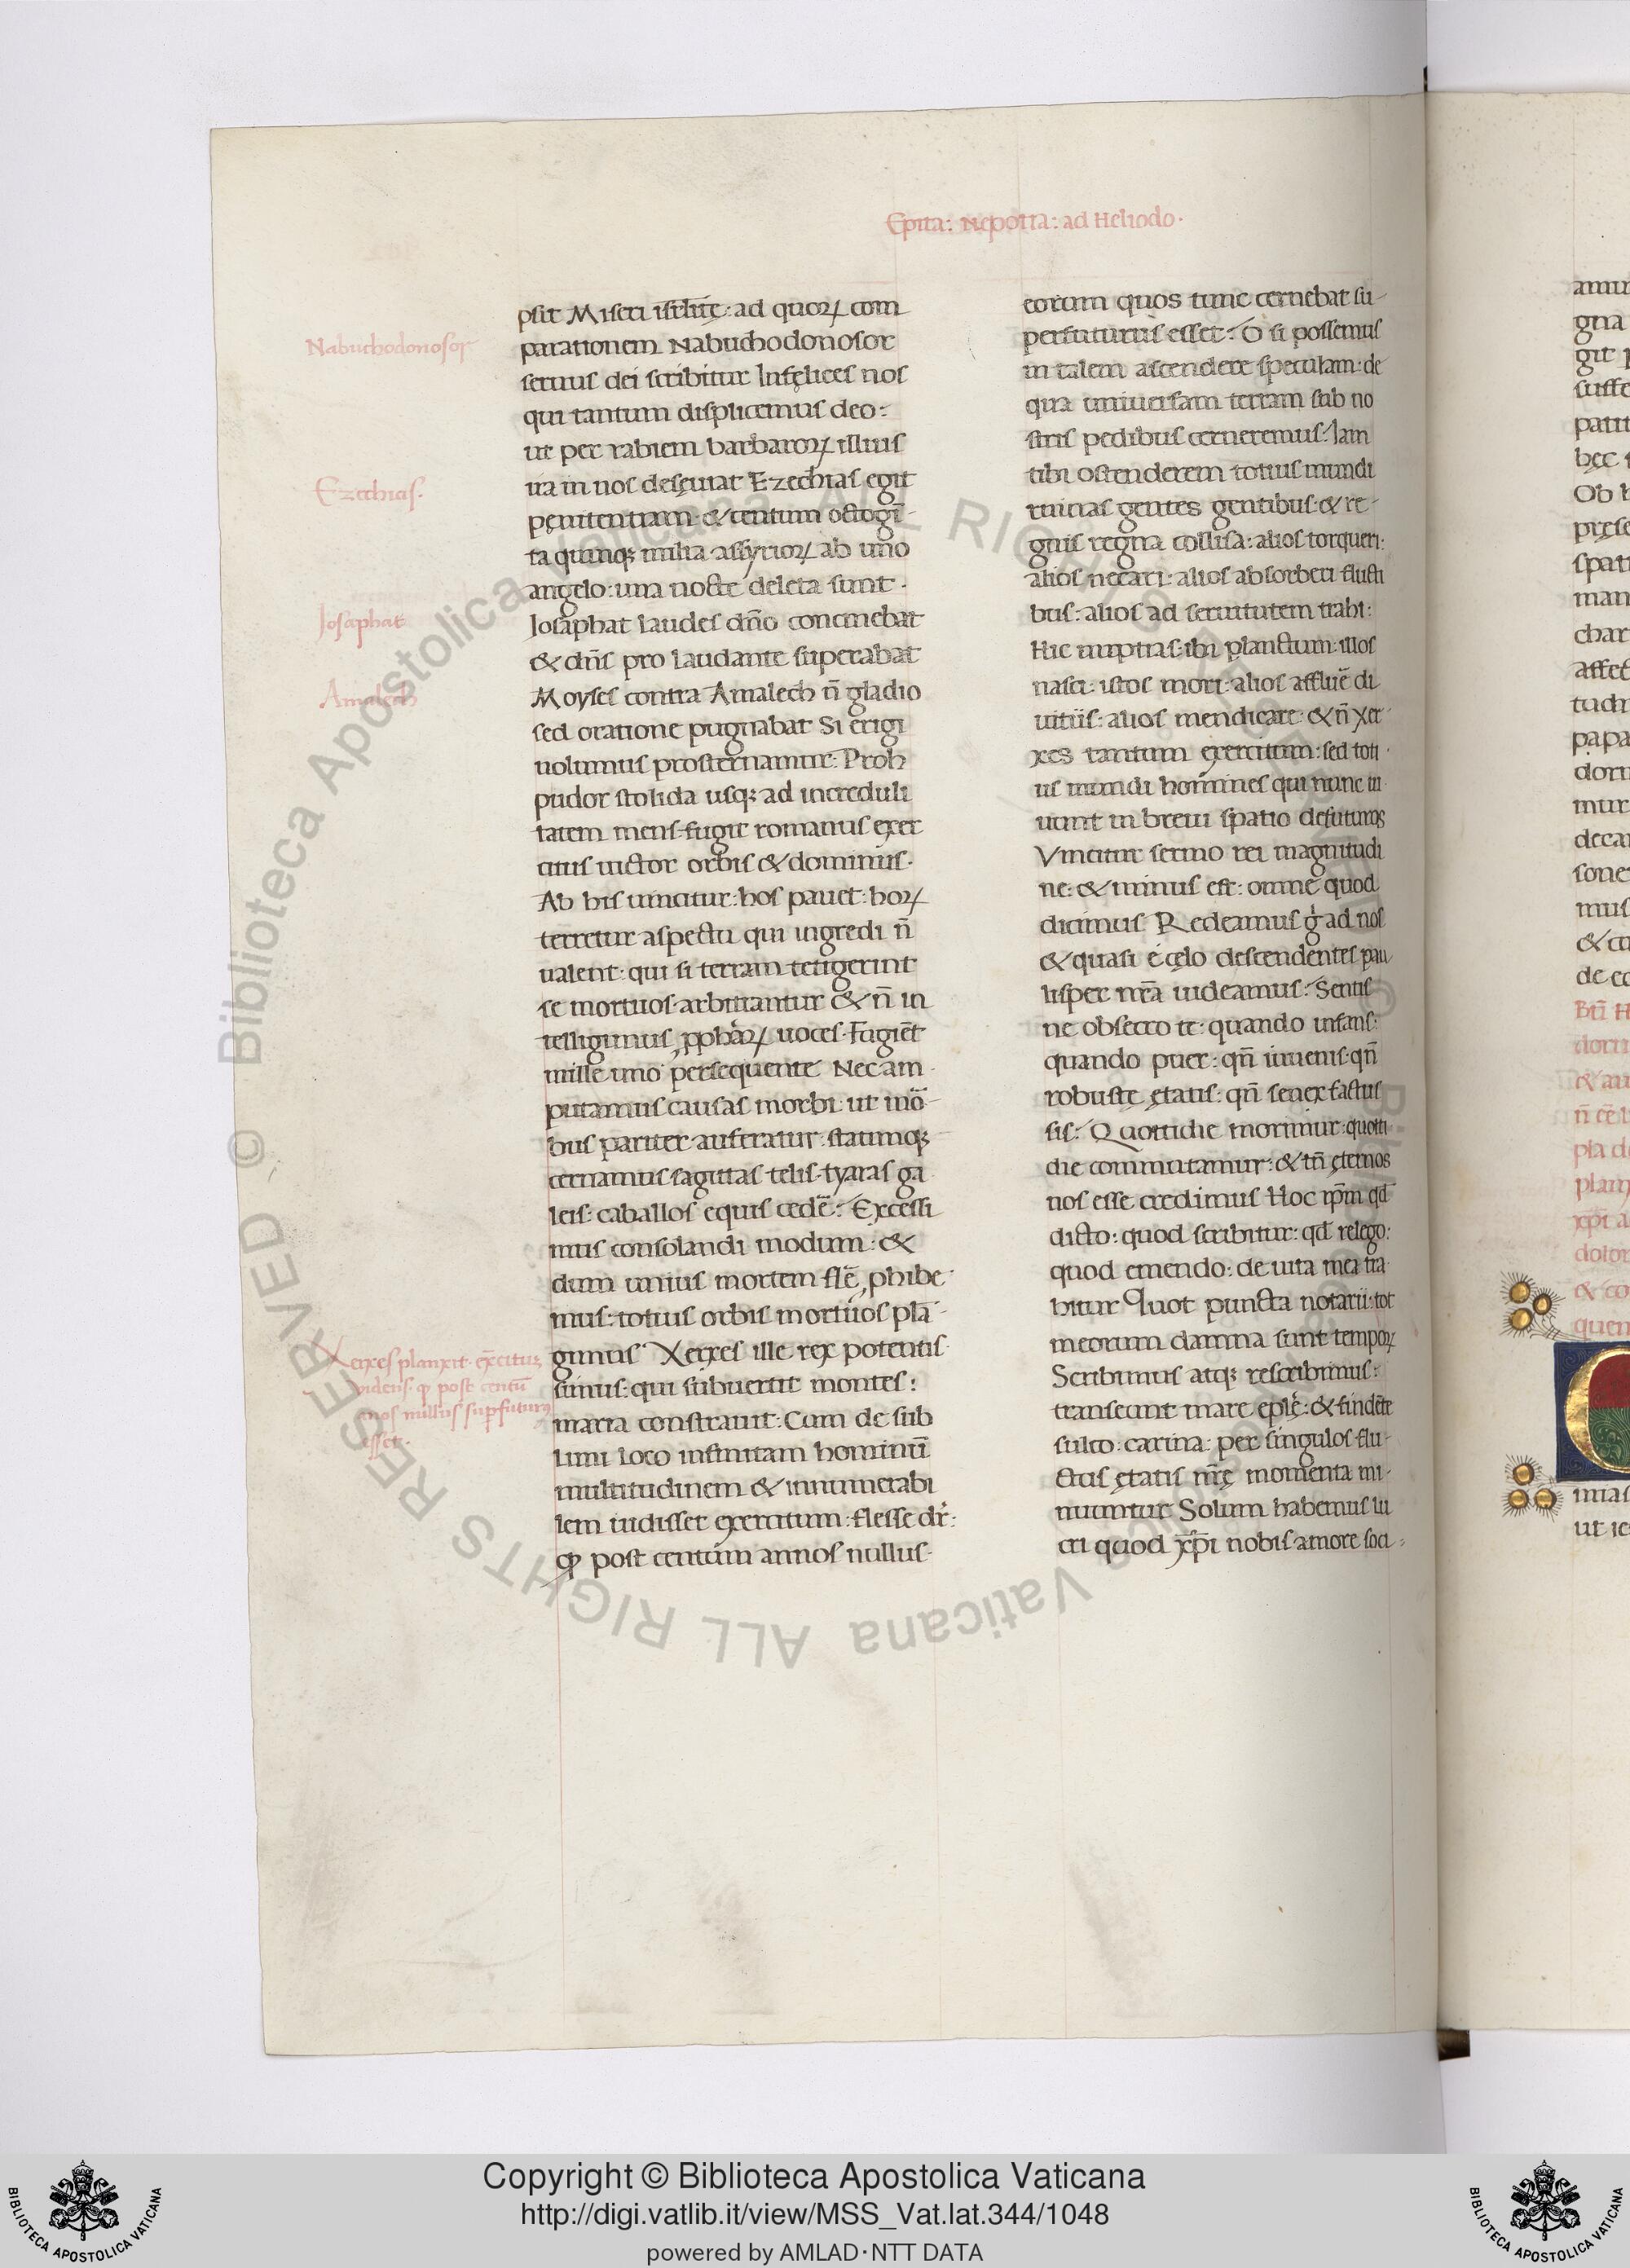 Epita: Nepotia: ad Heliodo·
Nabuchodonosor
Ezechias.
Josaphat
Amalech
Xerxes planxit exercitus
videns qp post centū
annos nullus supfuturus
esset.
psit Miseri isrłite: ad quoꝝ com
parationem Nabuchodonosor
seruus dei scribitur Infęlices nos
qui tantum displicemus deo:
ut per rabiem barbaroꝝ illius
ira in nos desęuiat Ezechias egit
pęnitentiam·& centum octogī-
ta quinqꝫ milia assyrioꝝ ab uno
angelo: una nocte deleta sunt.
Josaphat laudes dño concinebat
& dñs pro laudante superabat
Moyses contra Amalech ñ gladio
sed oratione pugnabat Si erigi
uolumus prosternamur: Proh
pudor stolida usqꝫ ad increduli
tatem mens·fugit romanus exer
citus uictor orbis & dominus·
Ab his uincitur: hos pauet: hoꝝ
terretur aspectu qui ingredi ñ
ualent: qui si terram tetigerint
se mortuos·arbitrantur & ñ in
telligimus ꝓphaꝝ uoces·Fugiēt
mille uno persequente Nec am
putamus causas morbi: ut mō-
bus pariter auferatur: statimqꝫ
cernamus sagittas telis·tyaras ga
leis: caballos equis cedē: Excessi
mus consolandi modum: &
dum unius mortem flē ꝓhibe
mus: totius orbis mortuos plā-
gimus Xerxes ille rex potentis
simus: qui subuertit montes:
maria constrauit: Cum de sub
limi loco infinitam hominū
multitudinem & innumerabi
lem uidisset exercitum: flesse dr̃:
qp post centum annos nullus-
eorum quos tunc cernebat su-
perfuturus esset: O si possemus
in talem ascendere speculam: de
qua uniuersam terram sub no
stris pedibus cerneremus: Iam
tibi ostenderem totius mundi
ruinas gentes gentibus: & re-
gnis regna collisa: alios torqueri:
alios necari: alios absorberi flucti
bus: alios ad seruitutem trahi:
Hic nuptias: ibi planctum: illos
nasci: istos mori: alios afflue di
uitiis: alios mendicare: & ñ xer
xes tantum exercitum: sed toti
us mundi homines qui nunc ui
uunt in breui spatio defuturos
Vincitur sermo rei magnitudi
ne: & minus est: omne quod
dicimus Redeamus g̊ ad nos
& quasi e cęlo descendentes pau
lisper nr̃a uideamus: Sentis
ne obsecro te: quando infans:
quando puer: qñ iuuenis·qñ
robustę ętatis: qñ senex factus
sis: Quottidie morimur: quotti
die commutamur: & tñ ęternos
nos esse credimus Hoc ipm̄ qđ
dicto: quod scribitur: qđ relego:
quod emendo: de uita mea tra
hitur Quot puncta notarii: tot
meorum damna sunt tempoꝝ
Scribimus atqꝫ rescribimus:
transeunt mare eplę: & findēte
sulco: carina: per singulos flu-
ctus ętatis nr̃ę momenta mi-
nuuntur Solum habemus lu
cri quod xp̄i nobis amore soci-
Copyright © Biblioteca Apostolica Vaticana
http://digi.vatlib.it/view/MSS_Vat.lat.344/1048
powered by AMLAD·NTT DATA